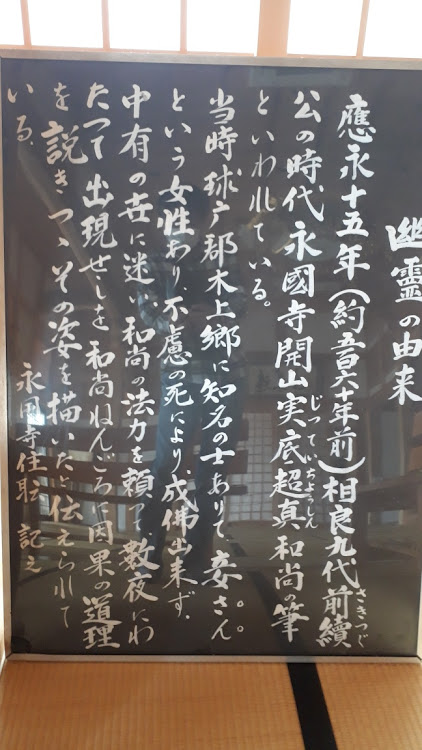 幽霊の由来
應永十五年(約五百六十年前)相良九代前續
さきつぐ
公の時代永國寺開山実底超真和尚の筆
じっていちようしん
といわれている。
当時球戸郡木上郷に知名の士ありて妾さん。。
という女性あり、不慮の死により、成佛出来ず、
中有の世に迷い、和尚の法力を頼って数夜にわ
たって出現せしを和尚ねんごろに因果の道理
を説きつゝその姿を描いたと伝えられて
いる。
永国寺住職 記之